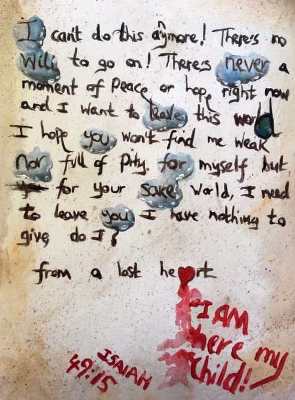 I can't do this anymore! There's no
Will to go on! There's never a
moment of Peace or hop, right now
and I want to leave this world
I hope you won't find me weak
nor full of Pity. for myself but
for your sake World, I need
to leave you I have nothing to
give do I?
from a lost heart
I AM
here my
child!
ISAIAH
49:15